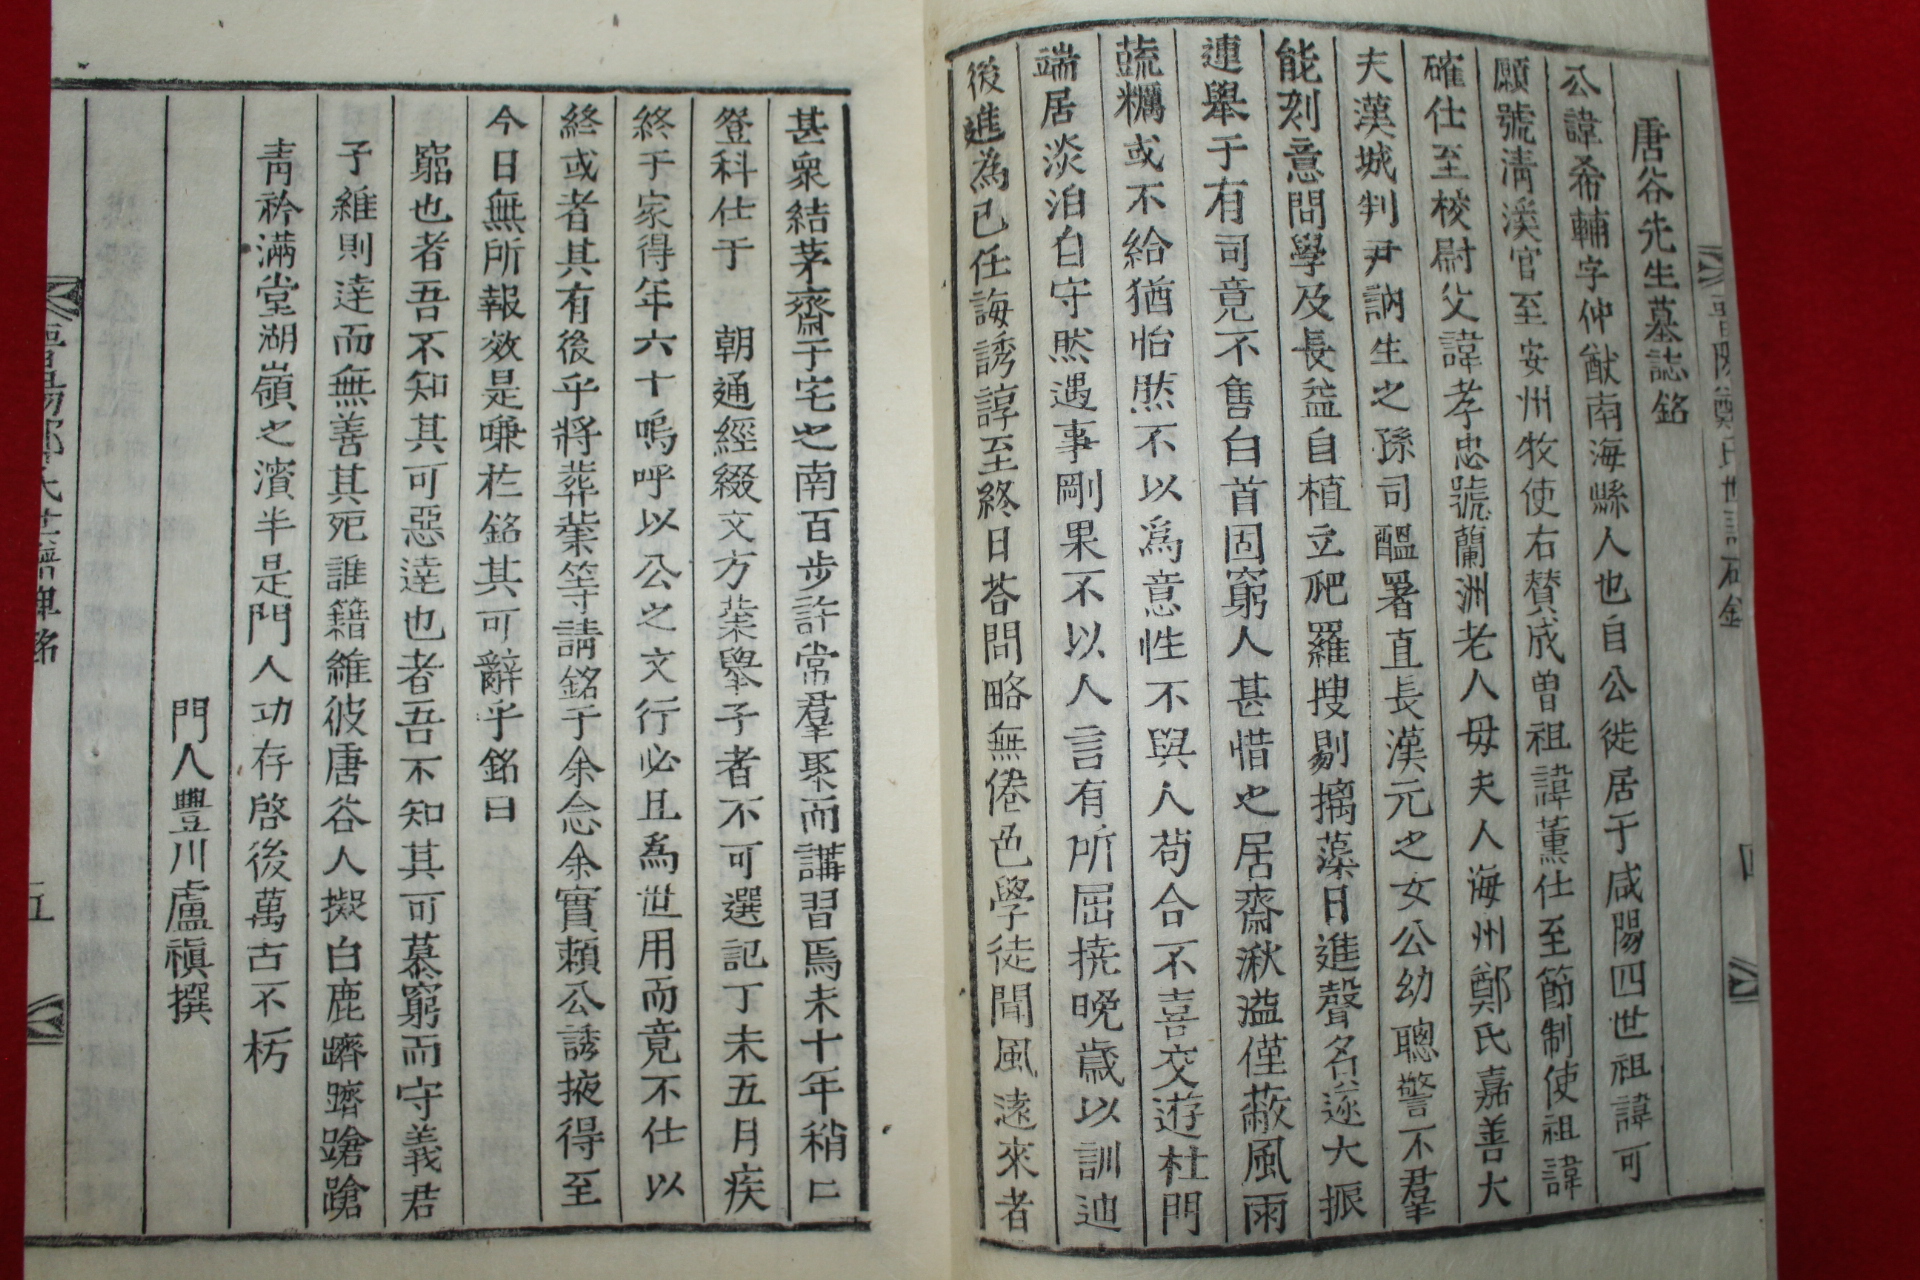 唐谷先生墓誌銘
公諱希輔字仲猷南海縣人也自公徙居于咸陽四世祖諱可
願號淸溪官至安州牧使右賛成曽祖諱薰仕至節制使祖諱
確仕至校尉父諱孝忠號蘭洲老人母夫人海州鄭氏嘉善大
夫漢城判尹訥生之孫司醞署直長漢元之女公幼聰警不羣
能刻意問學及長益自植立爬羅搜剔摛藻日進聲名逐大振
連擧于有司竟不售白首固窮人甚惜之居齋湫溢僅蔽風雨
蔬糲或不給猶怡然不以爲意性不與人苟合不喜交遊杜門
端居淡泊自守然遇事剛果不以人言有所屈撓晩歲以訓迪
後進為己任誨誘諄至終日荅問略無倦色學徒聞風遠來者
甚衆結茅齋于宅之南百步許常羣聚而講習焉未十年稍已
登科仕于 朝通經綴文方葉擧子者不可選記丁未五月疾
終于家得年六十嗚呼以公之文行必且爲世用而竟不仕以
終或者其有後乎將葬葉等請銘于余念余實賴公誘掖得至
今日無所報效是嗛扵銘其可辭乎銘曰
窮也者吾不知其可惡達也者吾不知其可慕窮而守義君
子維則達而無善其死誰籍維彼唐谷人擬白鹿躋躋蹌蹌
靑衿滿堂湖嶺之濱半是門人功存啓後萬古不朽
門人豐川盧禛撰
五